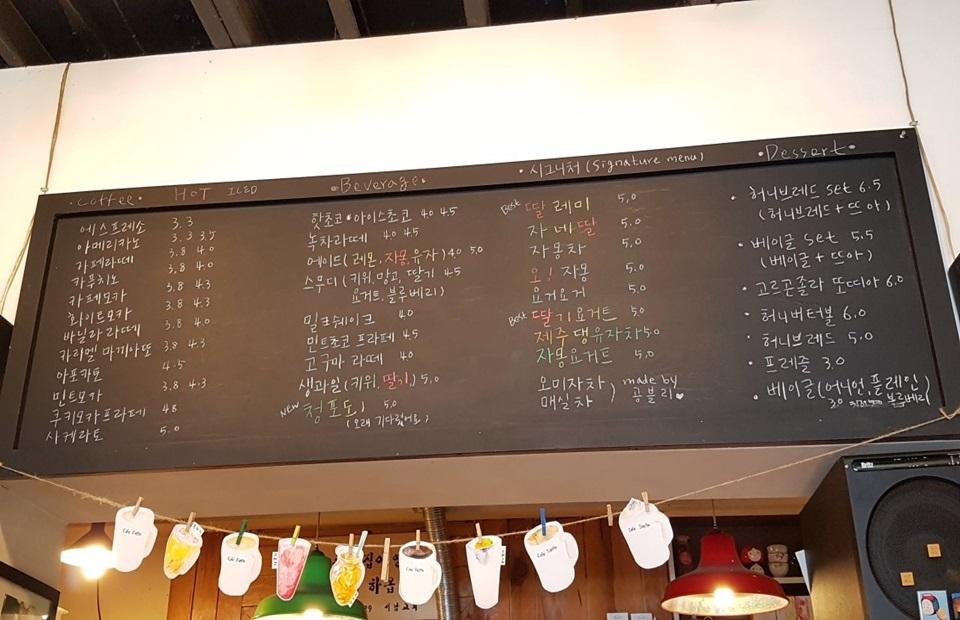 •Coffee• HOT ICED
에스프레소 3.3
아메리카노 3.3 3.5
카페라떼 3.8 4.0
카푸치노 3.8 4.0
카페모카 3.8 4.3
화이트모카 3.8 4.3
바닐라라떼 3.8 4.0
카라멜 마끼아또 3.8 4.3
아포카토 4.5
민트모카 3.8 4.3
쿠키모카프라페 4.8
사케라또 5.0
•Beverage•
핫초코•아이스초코 4.0 4.5
녹차라떼 4.0 4.5
에이드(레몬,자몽,유자) 4.0 5.0
스무디(키위,망고,딸기 4.5
요거트,블루베리)
밀크쉐이크 4.0
민트초코 프라페 4.5
고구마 라떼 4.0
생과일(키위,딸기,) 5.0
NEW 청포도! 5.0
(오래 기다렸어요)
•시그니처 (Signature menu)
Best 딸 레미 5.0
자네딸 5.0
자몽차 5.0
오! 자몽 5.0
요거요거 5.0
Best 딸기요거트 5.0
제주댕유자차 5.0
자몽요거트 5.0
오미자차
매실차
made by
공블리♥
•Dessert•
•허니브레드 set 6.5
(허니브레드+뜨아)
•베이글 set 5.5
(베이글+뜨아)
•고르곤졸라 또띠아 6.0
•허니버터볼 6.0
•허니브레드 5.0
•프레즐 3.0
•베이글(어니언,플레인)
3.0 블루베리